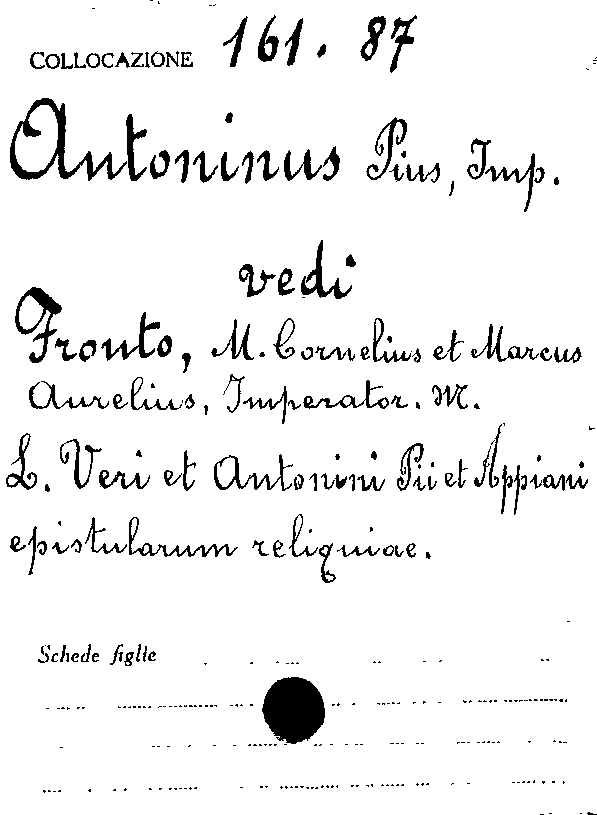 COLLOCAZIONE 161. 87
Antoninus Pius, Imp.
vedi
Fronto, M. Cornelius et Marcus
Aurelius, Imperator. M.
L. Veri et Antonini Pii et Appiani
epistularum reliquiae.
Schede figlie